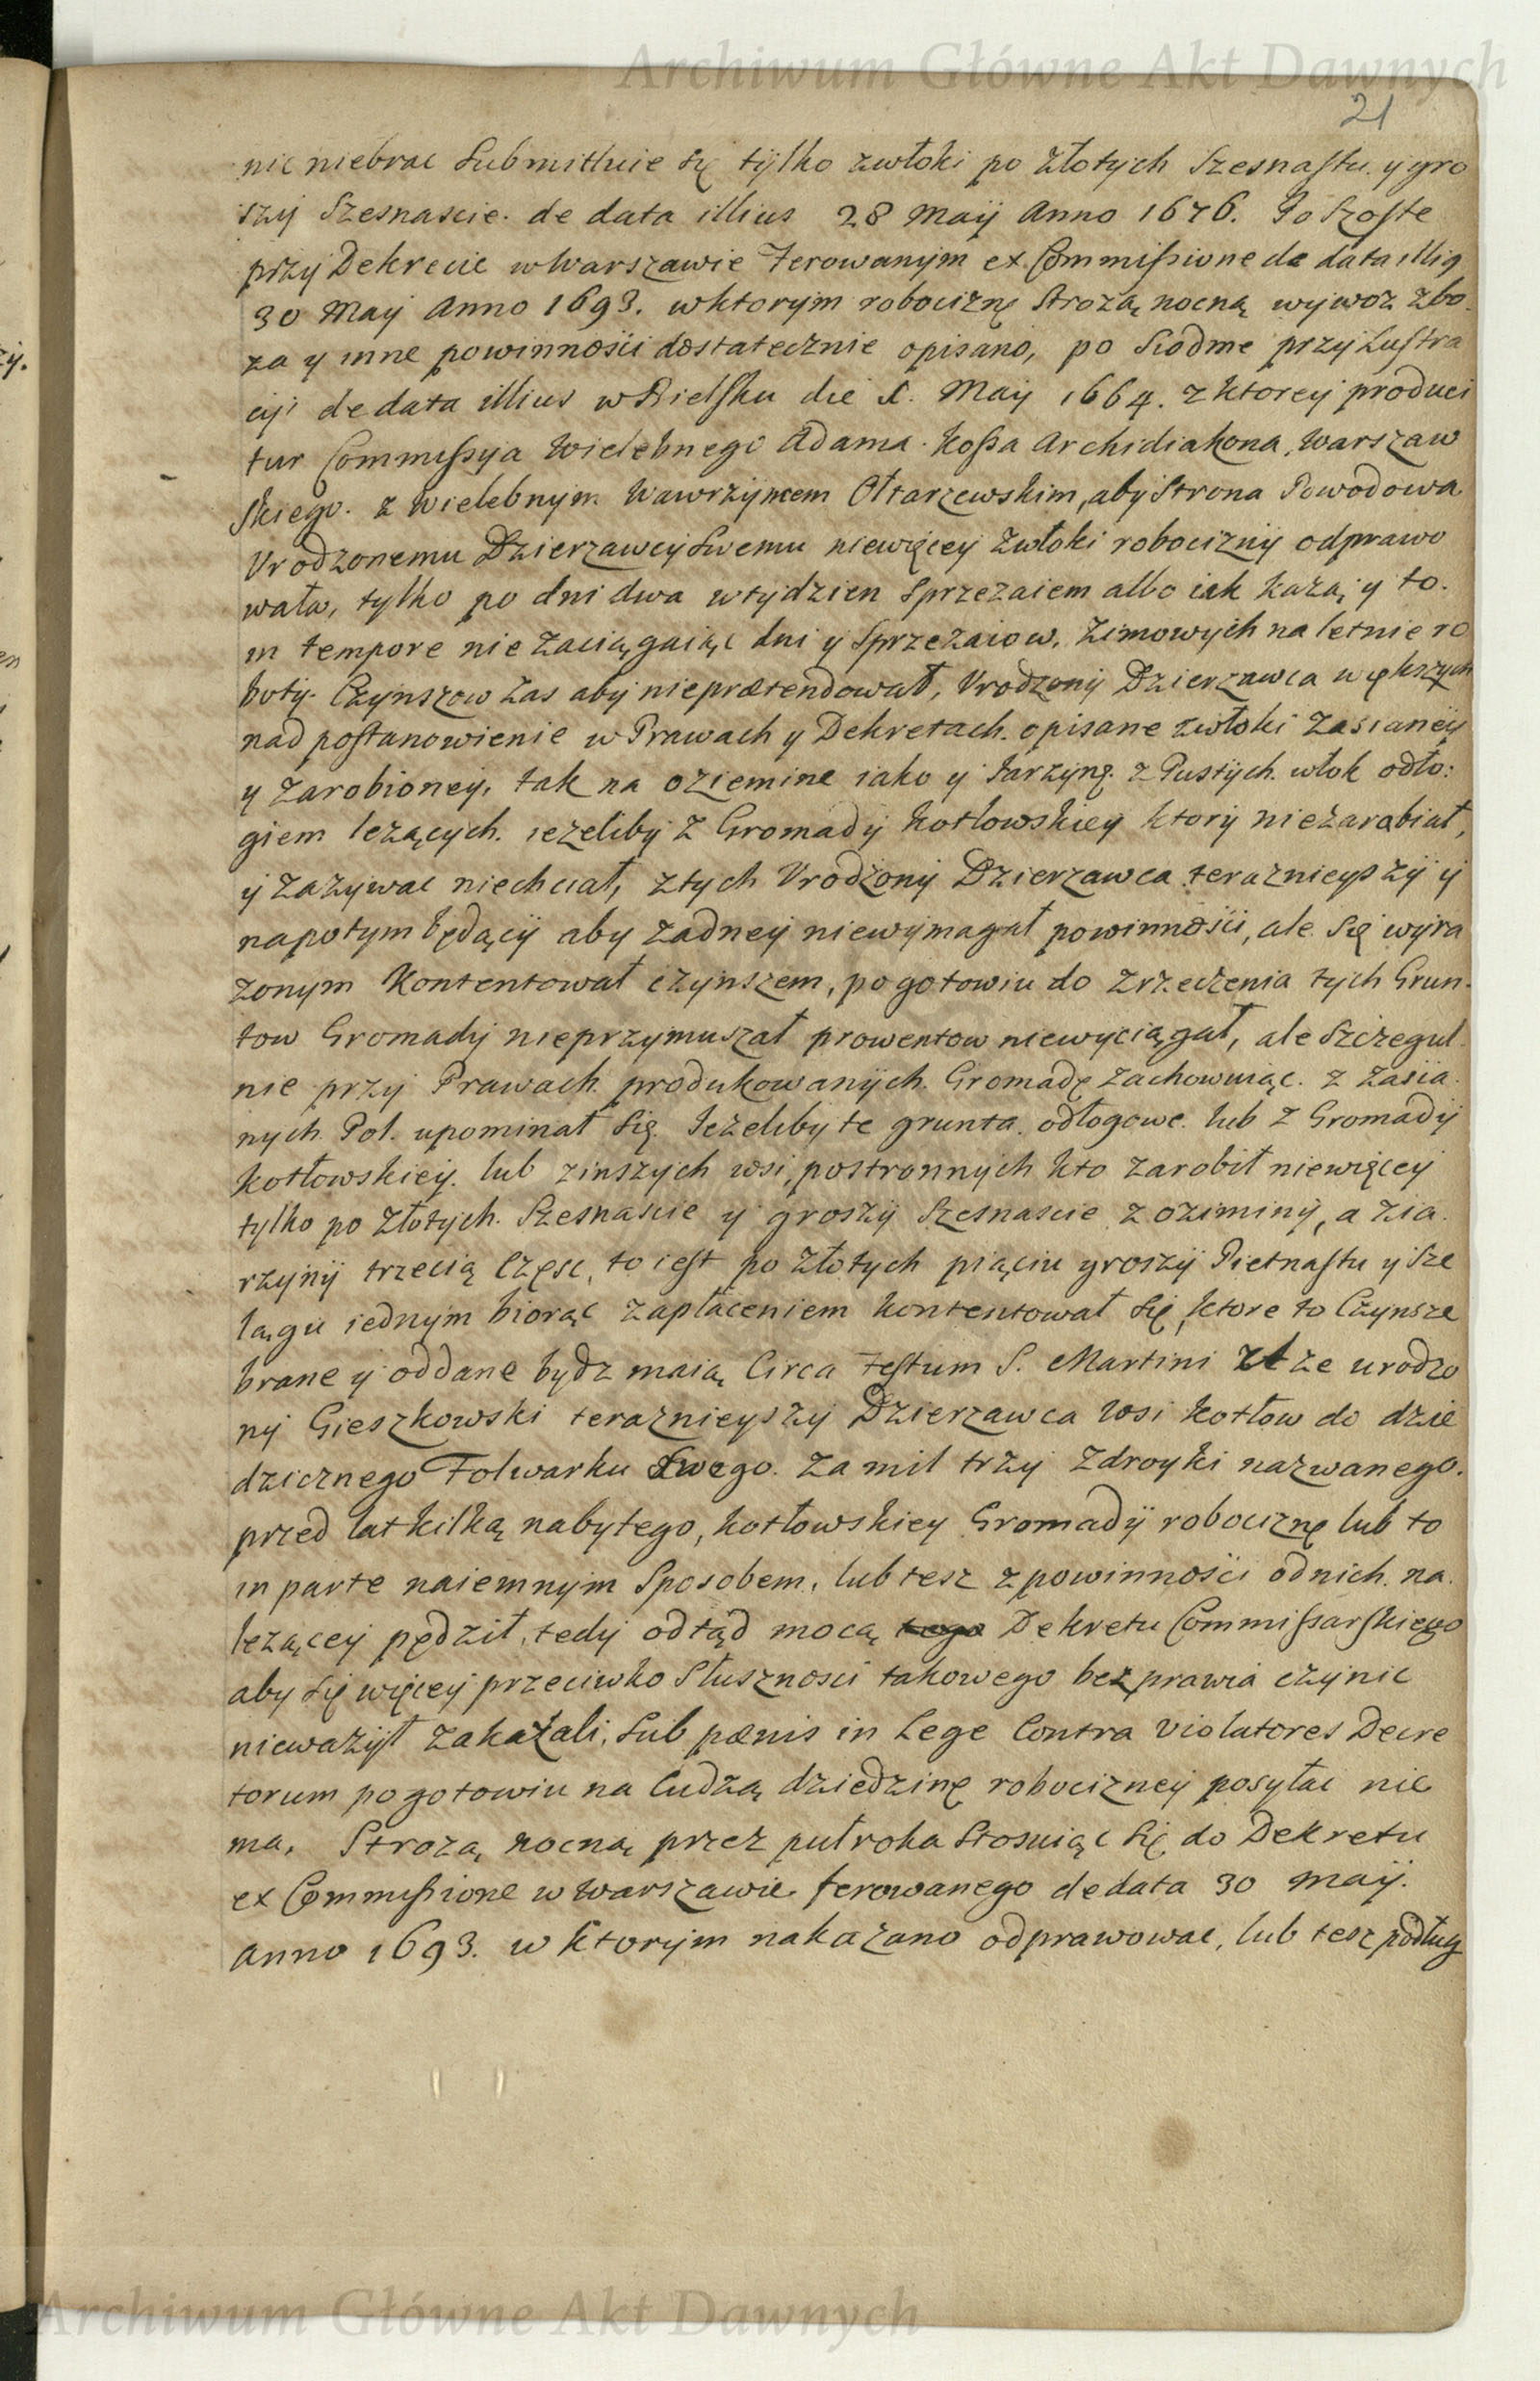 Archiwum Główne Akt Dawnych
21
nic niebrac Submittuie Się tylko zwłoki po złotych Szesnastu y gro
szy Szesnascie. de data illius 28 Maij Anno 1676. Po Szoste
przy Dekrecie w Warszawie Ferowanym ex Commissione de data illius
30 Maij Anno 1693. w ktorym robociznę Strozą nocną wywoz zbo
za y inne powinnosci dostatecznie opisano, po Siodme przy Lustra
cyi de data illius w Bielsku die Maij 1664. z ktorey produci
tur Commissya Wielebnego Adama Kossa Archidiakona Warszaw
skiego. z Wielebnym Wawrzyncem Ołtarzewskim, aby Strona Powodowa
Vrodzonemu Dzierzawcy Swemu niewięcey zwłoki robocizny odprawo
wała, tylko po dni dwa w tydzien Sprzezaiem albo iak kazą y to.
in tempore nie zaciągaiąc dni y Sprzezaiow. Zimowych na letnie ro
boty. Czynszow zas aby nieprætendował, Vrodzony Dzierzawca większych
nad postanowienie w Prawach y Dekretach. opisane zwłoki Zasianey
y zarobioney, tak na oziemine iako y Jarzynę. z Pustych. włok odło:
giem lezących. iezeliby z Gromady Kotłowskiey ktory niezarabiał,
y zazywac niechciał, z tych Vrodzony Dzierzawca teraznieyszy y
napotym będący aby zadney niewymagał powinnosci, ale Się wyra
zonym Kontentował czynszem, pogotowiu do zrzeczenia tych Grun-
tow Gromady nieprzymuszał prowentow niewyciągał, ale Szczegul
nie przy Prawach produkowanych. Gromadę zachowuiąc. z zasia
nych Pol. upominał Się. Jezeliby te grunta odłogowe. lub z Gromady
Kotłowskiey. lub z inszych wsi, postronnych kto zarobił niewięcey
tylko po Złotych. Szesnascie y groszy Szesnascie z oziminy, a z ia
rzyny trzecią częsc, to iest po złotych piąciu groszy Pietnastu y Sze
lągu iednym biorąc zapłaceniem kontentował Się, ktore to Czynsze
brane y oddane bydz maią Circa Festum S. Martini ze urodzo
ny Gieszkowski teraznieyszy Dzierzawca wsi Kotłow do dzie
dzicznego Folwarku Swego. Za mil trzy Zdroyki nazwanego.
przed lat kilką nabytego, Kotłowskiey Gromady robociznę lub to
in parte naiemnym Sposobem, lub tesz z powinnosci od nich. na
lezącey pędził, tedy odtąd mocą tego Dekretu Commissarskiego
aby Się więcey przeciwko Słusznosci takowego bezprawia czynic
nieważył zakazali, Sub pœnis in Lege Contra violatores Decre
torum pogotowiu na Cudzą dziedzinę robocizney posyłac nie
ma. Strozą nocną przez puł roka Stosuiąc Się do Dekretu
ex Commissione w Warszawie ferowanego de data 30 maij.
Anno 1693. w ktorym nakazano odprawowac, lub tesz podług
Archiwum Główne Akt Dawnych